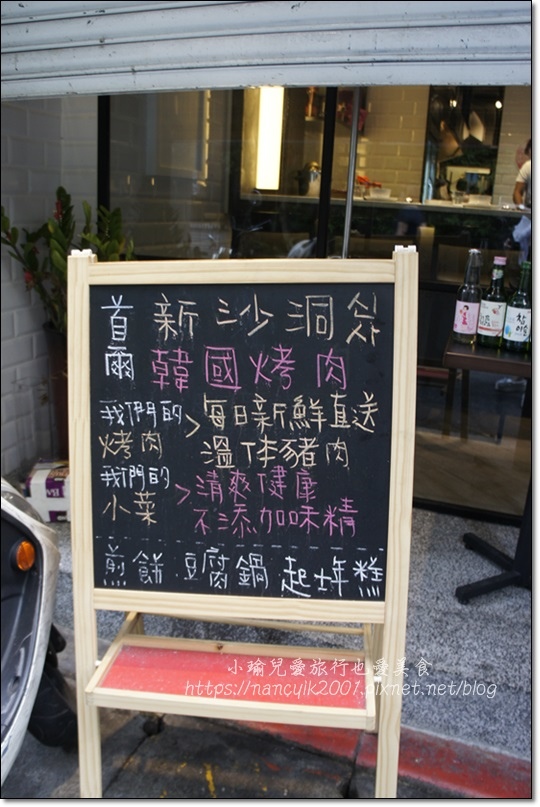 首爾 新沙洞
韓國烤肉
我們的烤肉 > 每日新鮮直送
溫体豬肉
我們的小菜 > 清爽健康
不添加味精
煎餅.豆腐鍋.起士年糕
小瑜兒愛旅行也愛美食
https://nancylk2007.pixnet.net/blog